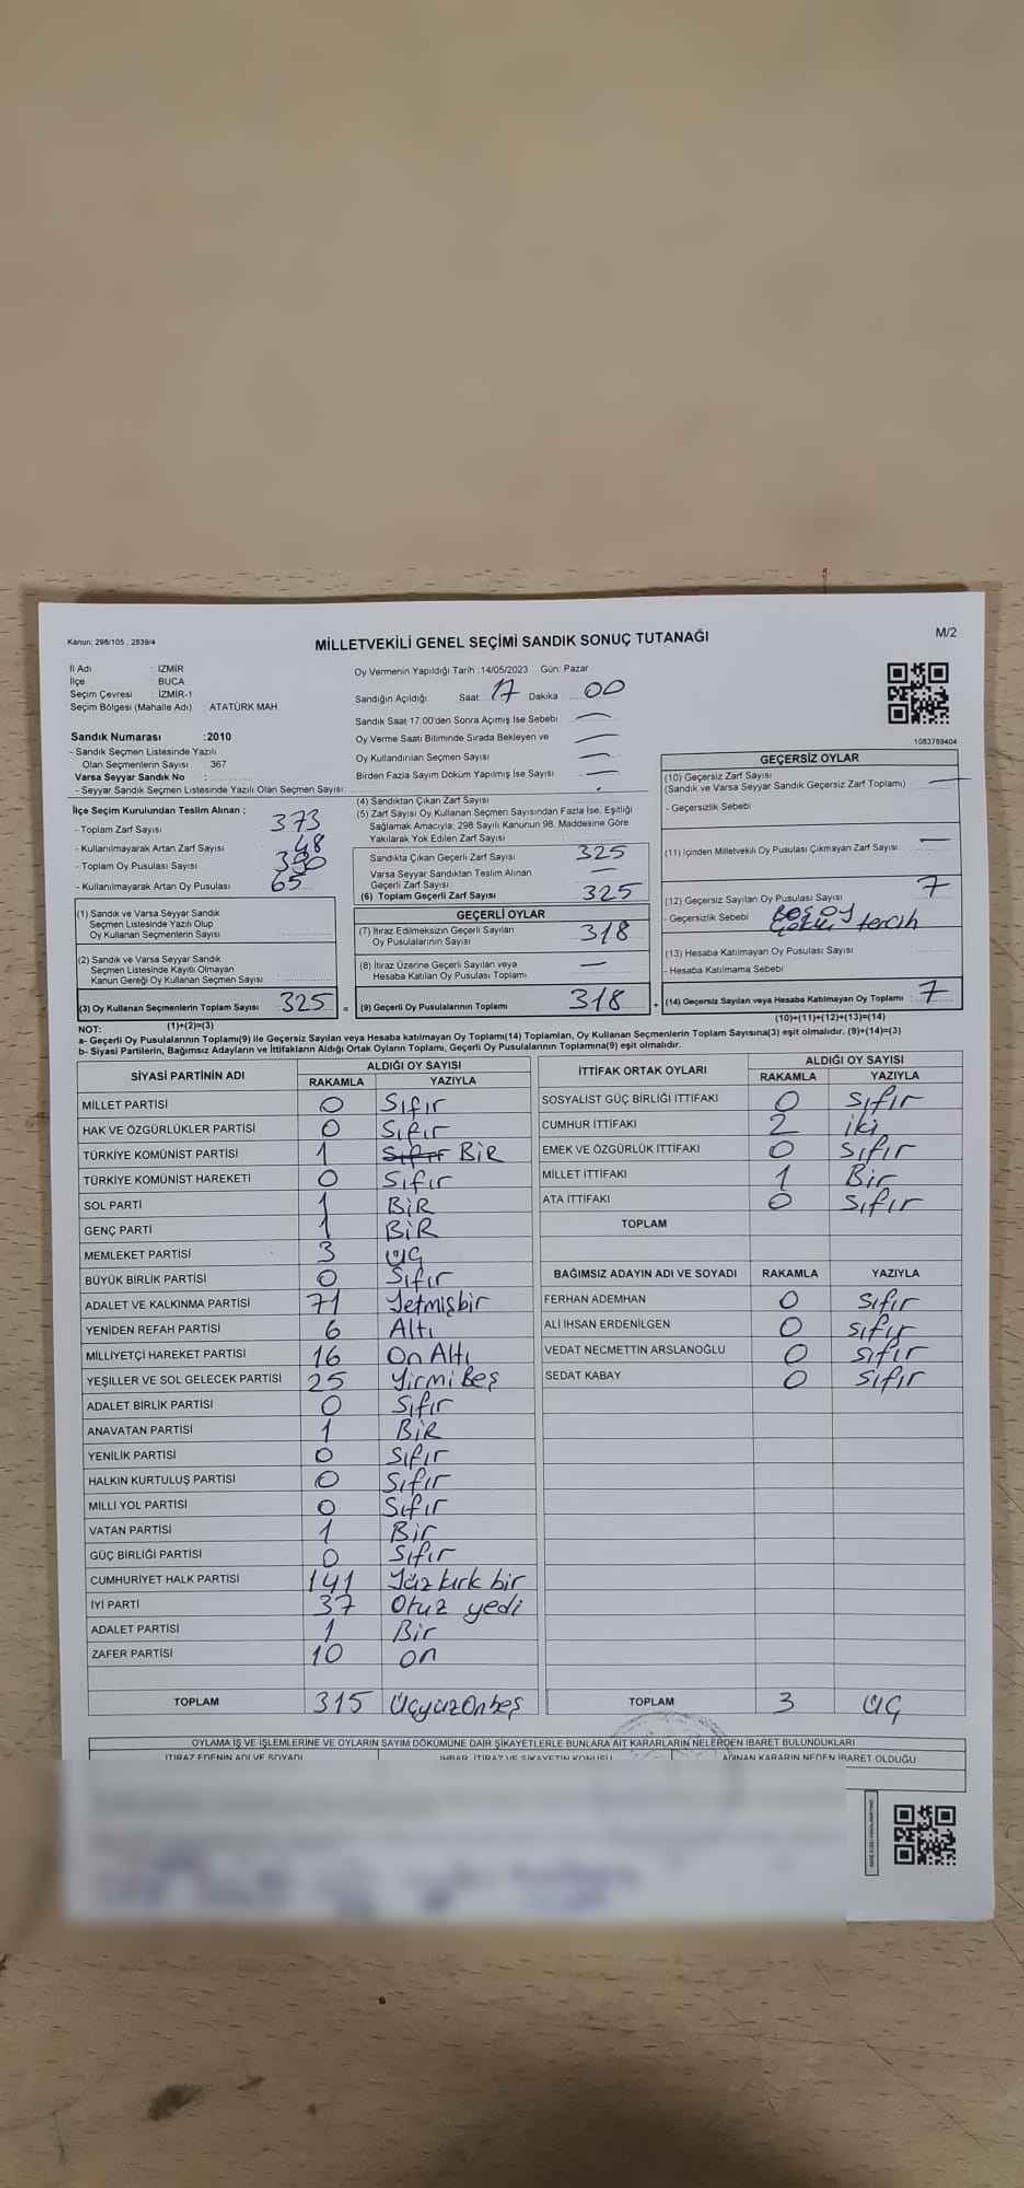 Kanun: 298/105 , 2839/4
MİLLETVEKİLİ GENEL SEÇİMİ SANDIK SONUÇ TUTANAĞI
M/2
İl Adı : İZMİR
İlçe : BUCA
Seçim Çevresi : İZMİR-1
Seçim Bölgesi (Mahalle Adı) : ATATÜRK MAH.
Sandık Numarası :2010
- Sandık Seçmen Listesinde Yazılı
Olan Seçmenlerin Sayısı : 367
Varsa Seyyar Sandık No :
- Seyyar Sandık Seçmen Listesinde Yazılı Olan Seçmen Sayısı:
Oy Vermenin Yapıldığı Tarih :14/05/2023 Gün: Pazar
Sandığın Açıldığı Saat 17 Dakika 00
Sandık Saat 17.00'den Sonra Açılmış İse Sebebi —
Oy Verme Saati Bitiminde Sırada Bekleyen ve —
Oy Kullandırılan Seçmen Sayısı —
Birden Fazla Sayım Döküm Yapılmış İse Sayısı —
1083789404
İlçe Seçim Kurulundan Teslim Alınan ;
- Toplam Zarf Sayısı 373
- Kullanılmayarak Artan Zarf Sayısı 48
- Toplam Oy Pusulası Sayısı 390
- Kullanılmayarak Artan Oy Pusulası 65
(1) Sandık ve Varsa Seyyar Sandık
Seçmen Listesinde Yazılı Olup
Oy Kullanan Seçmenlerin Sayısı
(2) Sandık ve Varsa Seyyar Sandık
Seçmen Listesinde Kayıtlı Olmayan
Kanun Gereği Oy Kullanan Seçmen Sayısı
(3) Oy Kullanan Seçmenlerin Toplam Sayısı 325 =
(1)+(2)=(3)
(4) Sandıktan Çıkan Zarf Sayısı
(5) Zarf Sayısı Oy Kullanan Seçmen Sayısından Fazla İse, Eşitliği
Sağlamak Amacıyla, 298 Sayılı Kanunun 98. Maddesine Göre
Yakılarak Yok Edilen Zarf Sayısı
Sandıkta Çıkan Geçerli Zarf Sayısı 325
Varsa Seyyar Sandıktan Teslim Alınan —
Geçerli Zarf Sayısı
(6) Toplam Geçerli Zarf Sayısı 325
GEÇERLİ OYLAR
(7) İtiraz Edilmeksizin Geçerli Sayılan
Oy Pusulalarının Sayısı 318
(8) İtiraz Üzerine Geçerli Sayılan veya
Hesaba Katılan Oy Pusulası Toplamı —
(9) Geçerli Oy Pusulalarının Toplamı 318 +
GEÇERSİZ OYLAR
(10) Geçersiz Zarf Sayısı —
(Sandık ve Varsa Seyyar Sandık Geçersiz Zarf Toplamı)
- Geçersizlik Sebebi
(11) İçinden Milletvekili Oy Pusulası Çıkmayan Zarf Sayısı —
(12) Geçersiz Sayılan Oy Pusulası Sayısı 7
- Geçersizlik Sebebi Boş oy
tercih
(13) Hesaba Katılmayan Oy Pusulası Sayısı
- Hesaba Katılmama Sebebi
(14) Geçersiz Sayılan veya Hesaba Katılmayan Oy Toplamı 7
(10)+(11)+(12)+(13)=(14)
NOT:
a- Geçerli Oy Pusulaları Toplamı(9) ile Geçersiz Sayılan veya Hesaba katılmayan Oy Toplamı(14) Toplamları, Oy Kullanan Seçmenlerin Toplam Sayısına(3) eşit olmalıdır. (9)+(14)=(3)
b- Siyasi Partilerin, Bağımsız Adayların ve İttifakların Aldığı Ortak Oyların Toplamı, Geçerli Oy Pusulalarının Toplamına(9) eşit olmalıdır.
SİYASİ PARTİNİN ADI ALDIĞI OY SAYISI
RAKAMLA YAZIYLA
MİLLET PARTİSİ 0 Sıfır
HAK VE ÖZGÜRLÜKLER PARTİSİ 0 Sıfır
TÜRKİYE KOMÜNİST PARTİSİ 1 Sıfır BİR
TÜRKİYE KOMÜNİST HAREKETİ 0 Sıfır
SOL PARTİ 1 BİR
GENÇ PARTİ 1 BİR
MEMLEKET PARTİSİ 3 üç
BÜYÜK BİRLİK PARTİSİ 0 Sıfır
ADALET VE KALKINMA PARTİSİ 71 Yetmişbir
YENİDEN REFAH PARTİSİ 6 Altı
MİLLİYETÇİ HAREKET PARTİSİ 16 On Altı
YEŞİLLER VE SOL GELECEK PARTİSİ 25 Yirmi Beş
ADALET BİRLİK PARTİSİ 0 Sıfır
ANAVATAN PARTİSİ 1 BİR
YENİLİK PARTİSİ 0 Sıfır
HALKIN KURTULUŞ PARTİSİ 0 Sıfır
MİLLİ YOL PARTİSİ 0 Sıfır
VATAN PARTİSİ 1 Bir
GÜÇ BİRLİĞİ PARTİSİ 0 Sıfır
CUMHURİYET HALK PARTİSİ 141 Yüz kırk bir
İYİ PARTİ 37 Otuz yedi
ADALET PARTİSİ 1 Bir
ZAFER PARTİSİ 10 on
TOPLAM 315 ÜçyüzOnbeş
İTTİFAK ORTAK OYLARI ALDIĞI OY SAYISI
RAKAMLA YAZIYLA
SOSYALİST GÜÇ BİRLİĞİ İTTİFAKI 0 Sıfır
CUMHUR İTTİFAKI 2 iki
EMEK VE ÖZGÜRLÜK İTTİFAKI 0 Sıfır
MİLLET İTTİFAKI 1 Bir
ATA İTTİFAKI 0 Sıfır
TOPLAM
BAĞIMSIZ ADAYIN ADI VE SOYADI RAKAMLA YAZIYLA
FERHAN ADEMHAN 0 Sıfır
ALİ İHSAN ERDENİLGEN 0 Sıfır
VEDAT NECMETTİN ARSLANOĞLU 0 Sıfır
SEDAT KABAY 0 Sıfır
TOPLAM 3 üç
OYLAMA İŞ VE İŞLEMLERİNE VE OYLARIN SAYIM DÖKÜMÜNE DAİR ŞİKAYETLERLE BUNLARA AİT KARARLARIN NELERDEN İBARET BULUNDUKLARI
İTİRAZ EDENİN ADI VE SOYADI İHBAR, İTİRAZ VE ŞİKAYETİN KONUSU ALINAN KARARIN NEDEN İBARET OLDUĞU